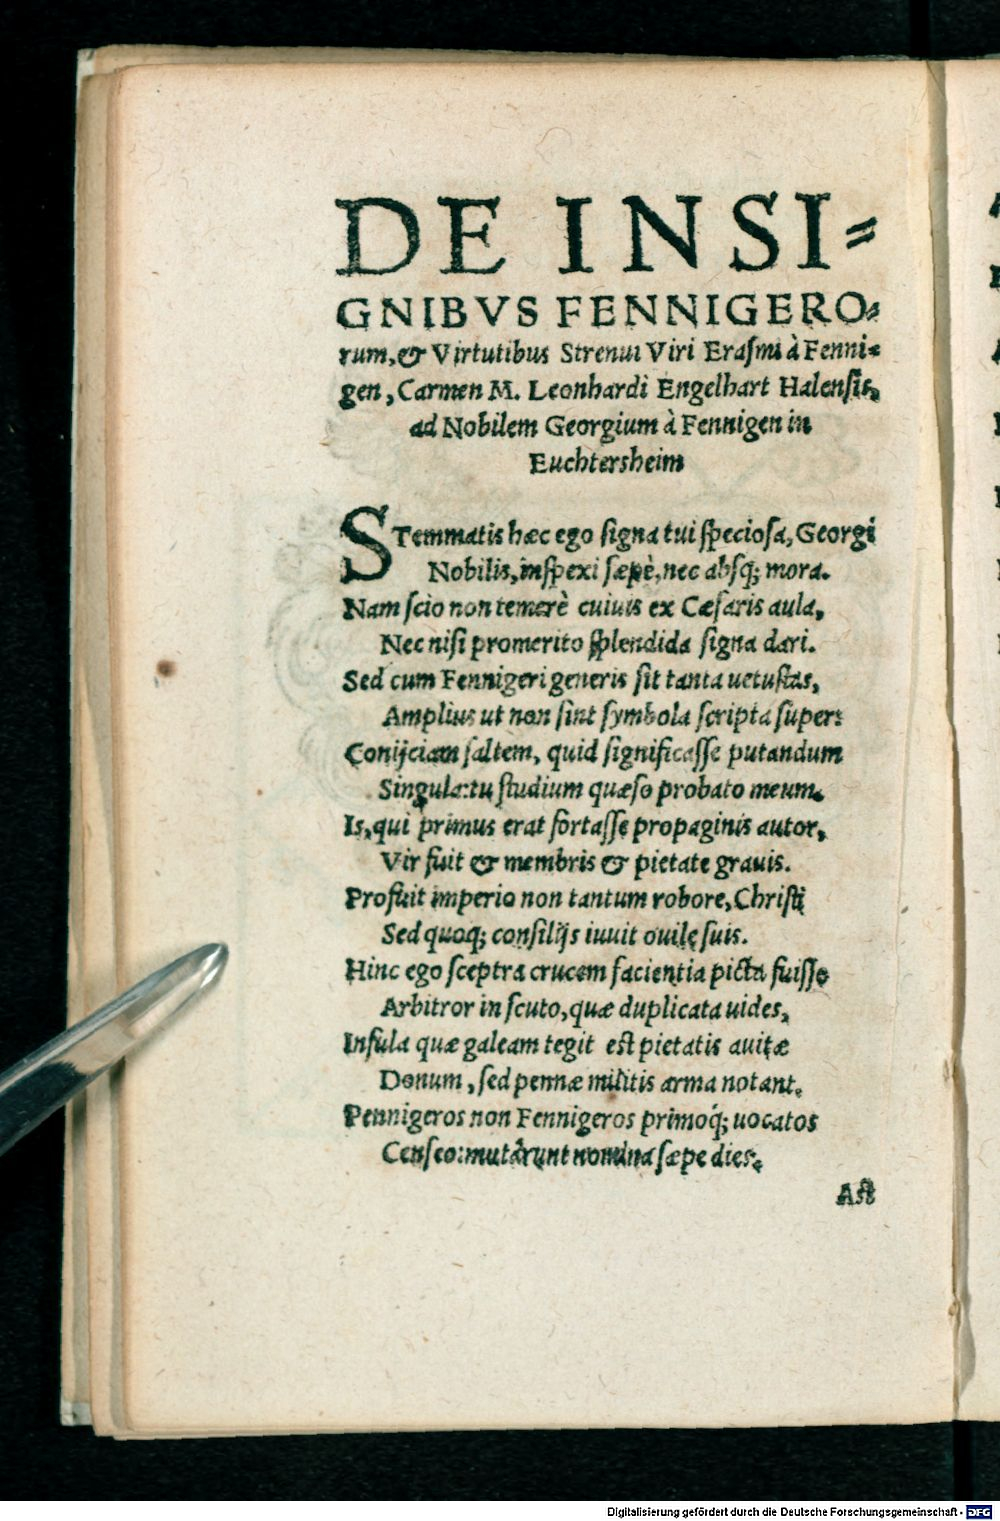 DE INSI-
GNIBVS FENNIGERO-
rum, & Virtutibus Strenui Viri Erasmi à Fenni-
gen, Carmen M. Leonhardi Engelhart Halensis,
ad Nobilem Georgium à Fennigen in
Euchtersheim
STemmatis hæc ego signa tui speciosa, Georgi
Nobilis, inspexi sæpè, nec absq; mora.
Nam scio non temerè cuiuis ex Cæsaris aula,
Nec nisi promerito splendida signa dari.
Sed cum Fennigeri generis sit tanta uetustas,
Amplius ut non sint symbola scripta super:
Conijciam saltem, quid significasse putandum
Singula: tu studium quæso probato meum.
Is, qui primus erat fortasse propaginis autor,
Vir fuit & membris & pietate grauis.
Profuit imperio non tantum robore, Christi
Sed quoq; consilijs iuuit ouile suis.
Hinc ego sceptra crucem facientia picta fuisse
Arbitror in scuto, quæ duplicata uides,
Insula quæ galeam tegit est pietatis auitæ
Donum, sed pennæ militis arma notant.
Pennigeros non Fennigeros primoq́; uocatos
Censeo: mutârunt nomina sæpe dies.
Ast
Digitalisierung gefördert durch die Deutsche Forschungsgemeinschaft - DFG